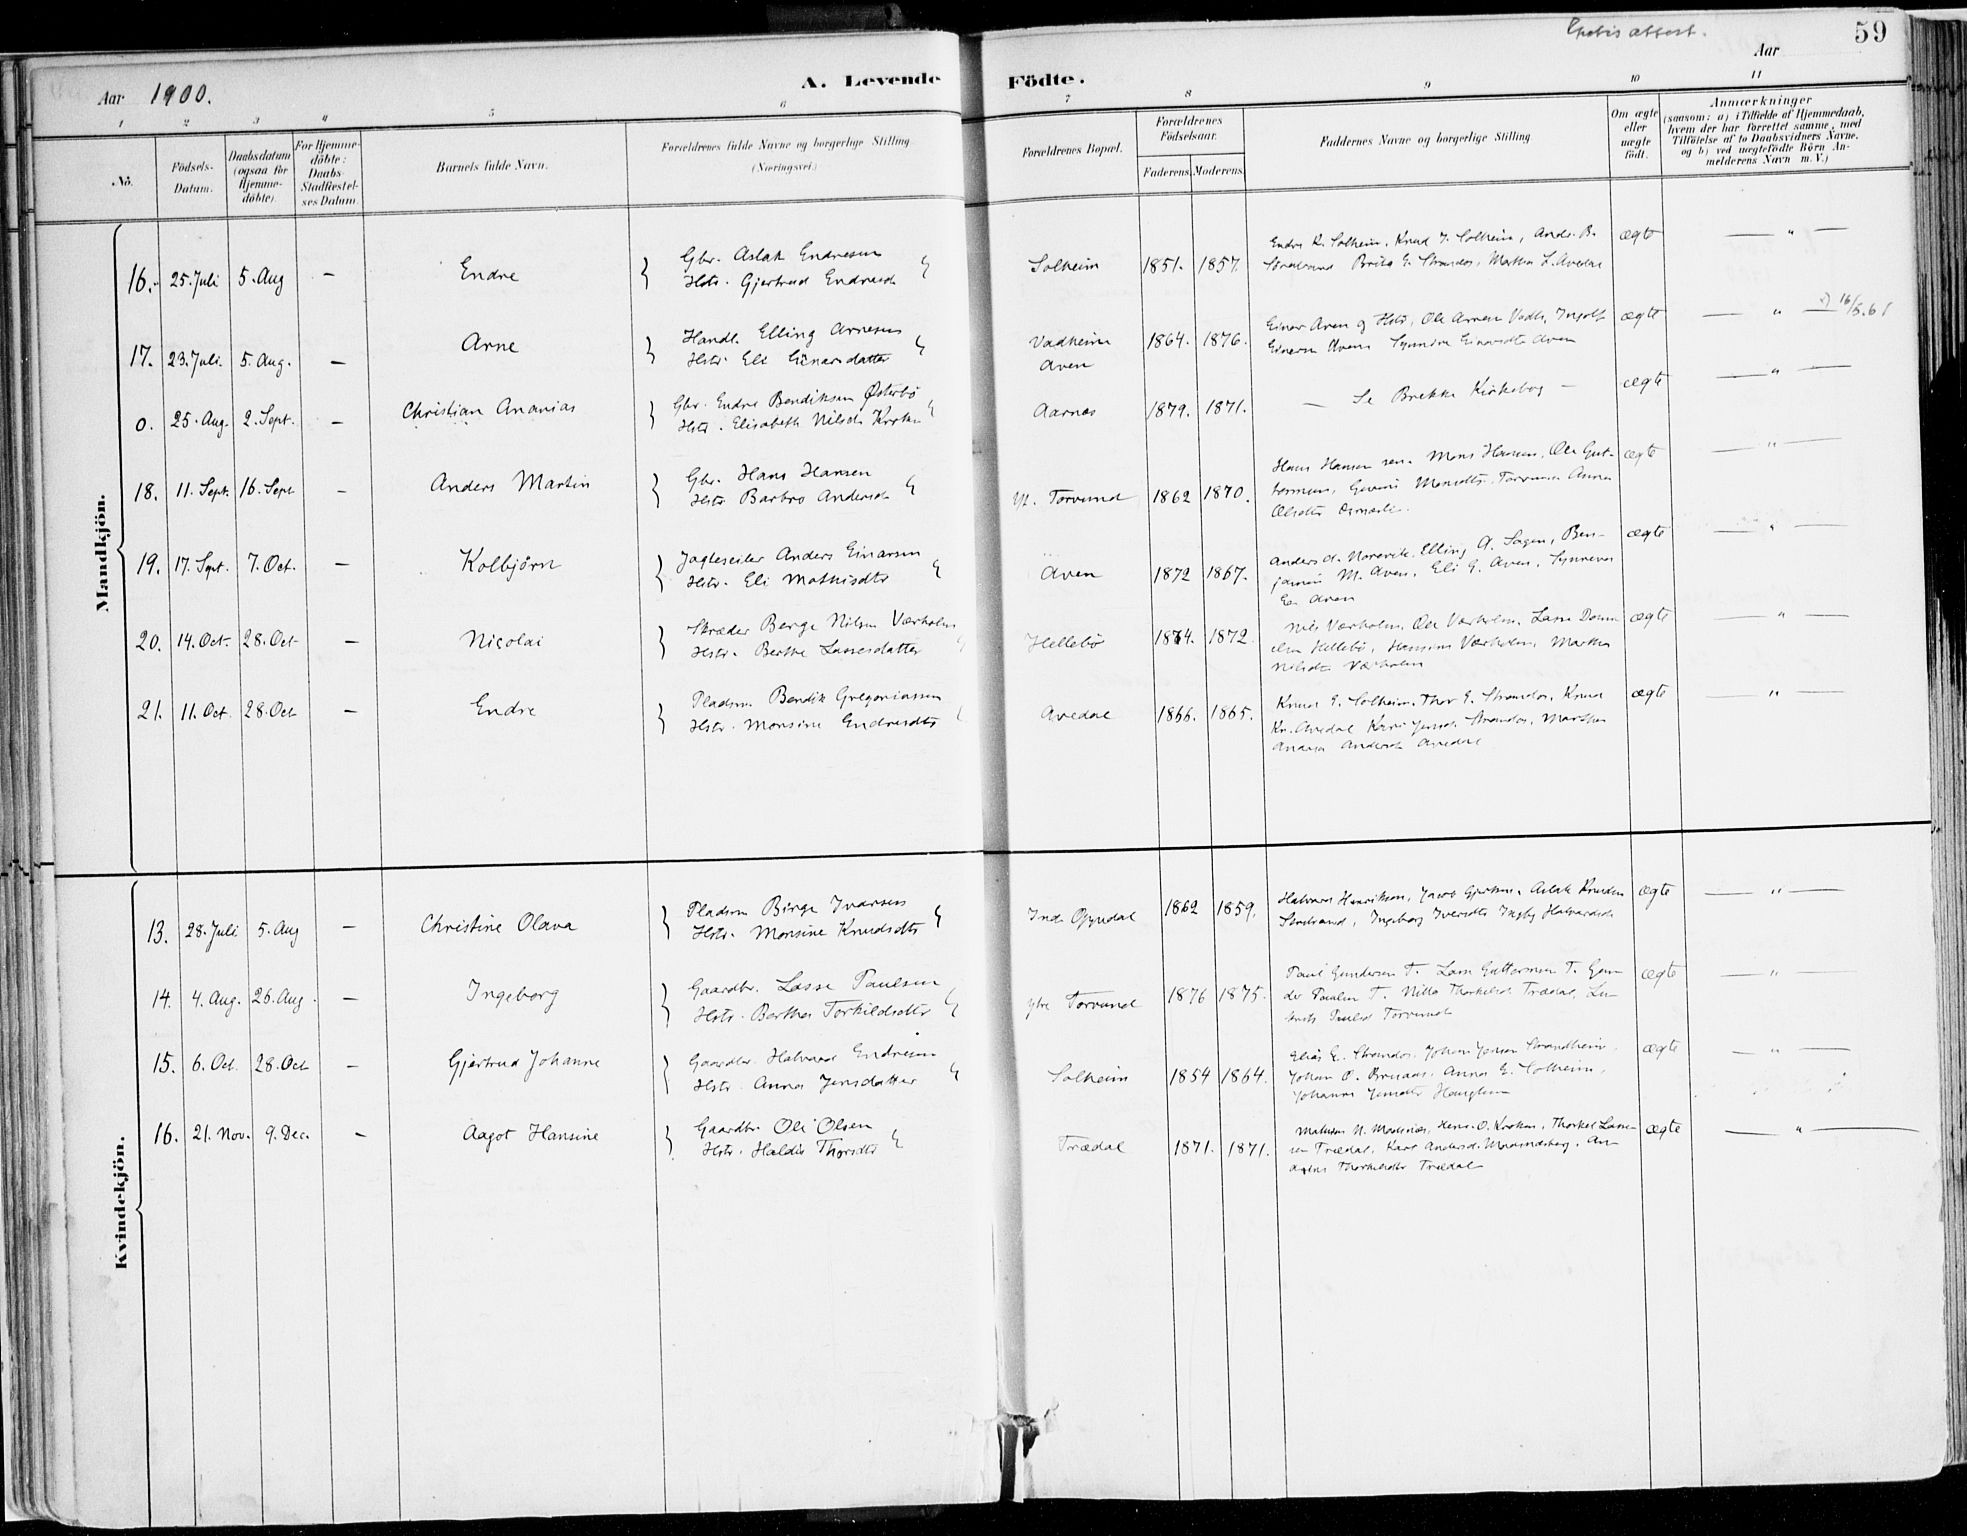 Gratis attest.
59
Aar 1900.
A. Levende Födte.
Aar
1 2 3 4 5 6 7 8 9 10 11
No.
Födsels-
Datum.
Daabsdatum
(ogsaa for
Hjemme-
döbte).
For Hjemme-
döbte:
Daabs-
Stadfæstel-
ses Datum.
Barnets fulde Navn.
Forældrenes fulde Navne og borgerlige Stilling
(Næringsvei.)
Forældrenes Bopæl.
Forældrenes
Födselsaar.
Faderens. Moderens.
Faddernes Navne og borgerlige Stilling
Om ægte
eller
uægte
födt.
Anmærkninger
(saasom: a) i Tilfælde af Hjemmedaab,
hvem der har forrettet samme, med
Tilföielse af to Daabsvidners Navne,
og b) ved uægtefödte Börn An-
melderens Navn m. V.)
Mandkjön.
16. 25. Juli 5. Aug — Endre
Gbr. Aslak Endresen
Hstr. Gjertrud Endresdt
Solheim 1851. 1857.
Endre K. Solheim, Knud J. Solheim, Andr. B.
Brita E. Strandos, Martha L. Avedal
ægte — " —
17. 23. Juli. 5. Aug. — Arne
Handl. Elling Arnesen
Hstr. Eli Einarsdatter
Vadheim
Aven
1864. 1876.
Einar Aven og Hstr, Ole Arnesen Vadh., Ingolf
Einarsen Aven Synneva Einarsdtr Aven
ægte — " — 16/5.61
0. 25. Aug. 2. Sept. — Christian Ananias
Gbr. Endre Bendiksen Østerbø
Hstr. Elisabeth Nilsdt Kroken
Aarnes 1879. 1871.
— Se Brekke Kirkebog —
ægte — " —
18. 11. Sept. 16. Sept — Anders Martin
Gbr. Hans Hansen
Hstr Barbro Andersdt
Yt. Torvund 1862 1870.
Hans Hansen sen. Mons Hansen, Ole Gut-
tormsen, Monsdtr. Torvund Anna
Olsdtr
ægte — " —
19. 17. Sept. 7. Oct. — Kolbjörn
Jagteseiler Anders Einarsen
Hstr. Eli Mathisdtr
Aven 1872 1867.
Anders A. Norevik. Elling A. Sagen, Ben-
jamin M. Aven, Eli E. Aven, Synneva
E. Aven
ægte — " —
20. 14. Oct. 28. Oct — Nicolai
Skræder Berge Nilsen Værholm
Hstr. Berthe Lassesdatter
Hellebø 1874. 1872.
Nils Værholm, Ole Værholm, Lasse Dani-
elsn Hellebø, Hansine Værholm, Martha
Nilsdtr Værholm
ægte — " —
21. 11. Oct. 28. Oct — Endre
Pladsm. Bendik Gregoriussen
Hstr. Monsine Endresdtr
Avedal 1866. 1865.
Knud E. Solheim, Thor E. Strandos, Knud
Kr. Avedal Kari Jensdt. Strandos, Martha
Andrea Andersdt Avedal
ægte — " —
Kvindekjön.
13. 28. Juli 5. Aug — Christine Olava
Pladsm Birge Ivarsen
Hstr. Monsine Knudsdtr
Indr Oppedal 1862 1859.
Halvard Henriksen, Jacob Aslak Knudsen
Ingeborg Iversdtr Ingbg Halvardsdt
ægte — " —
14. 4. Aug. 26. Aug. — Ingeborg
Gaardbr. Lasse Paulsen
Hstr. Berthe Torkildsdtr
Ytre Torvund 1876 1875.
Paul Gundersen T. Lasse Guttormsen T. Gun-
der Paulsen T. Nilla Thorkelsdt Trædal,
Paulsd Torvund
ægte — " —
15. 6. Oct. 28. Oct — Gjertrud Johanne
Gaardbr. Halvard Endresen
Hstr. Anna Jensdatter
Solheim 1854 1864.
Elias E. Strandos, Johan Jensen Strandheim,
Johan O. Anna E. Solheim,
Johanne Jensdtr
ægte — " —
16. 21. Nov. 9. Dec. — Aagot Hansine
Gaardbr. Ole Olsen
Hstr. Haldis Thorsdtr
Trædal 1871. 1871.
O. Kroken, Thorkel Lasse-
sen Trædal, Kari Andersd.
Thorkelsdtr Trædal
ægte — " —